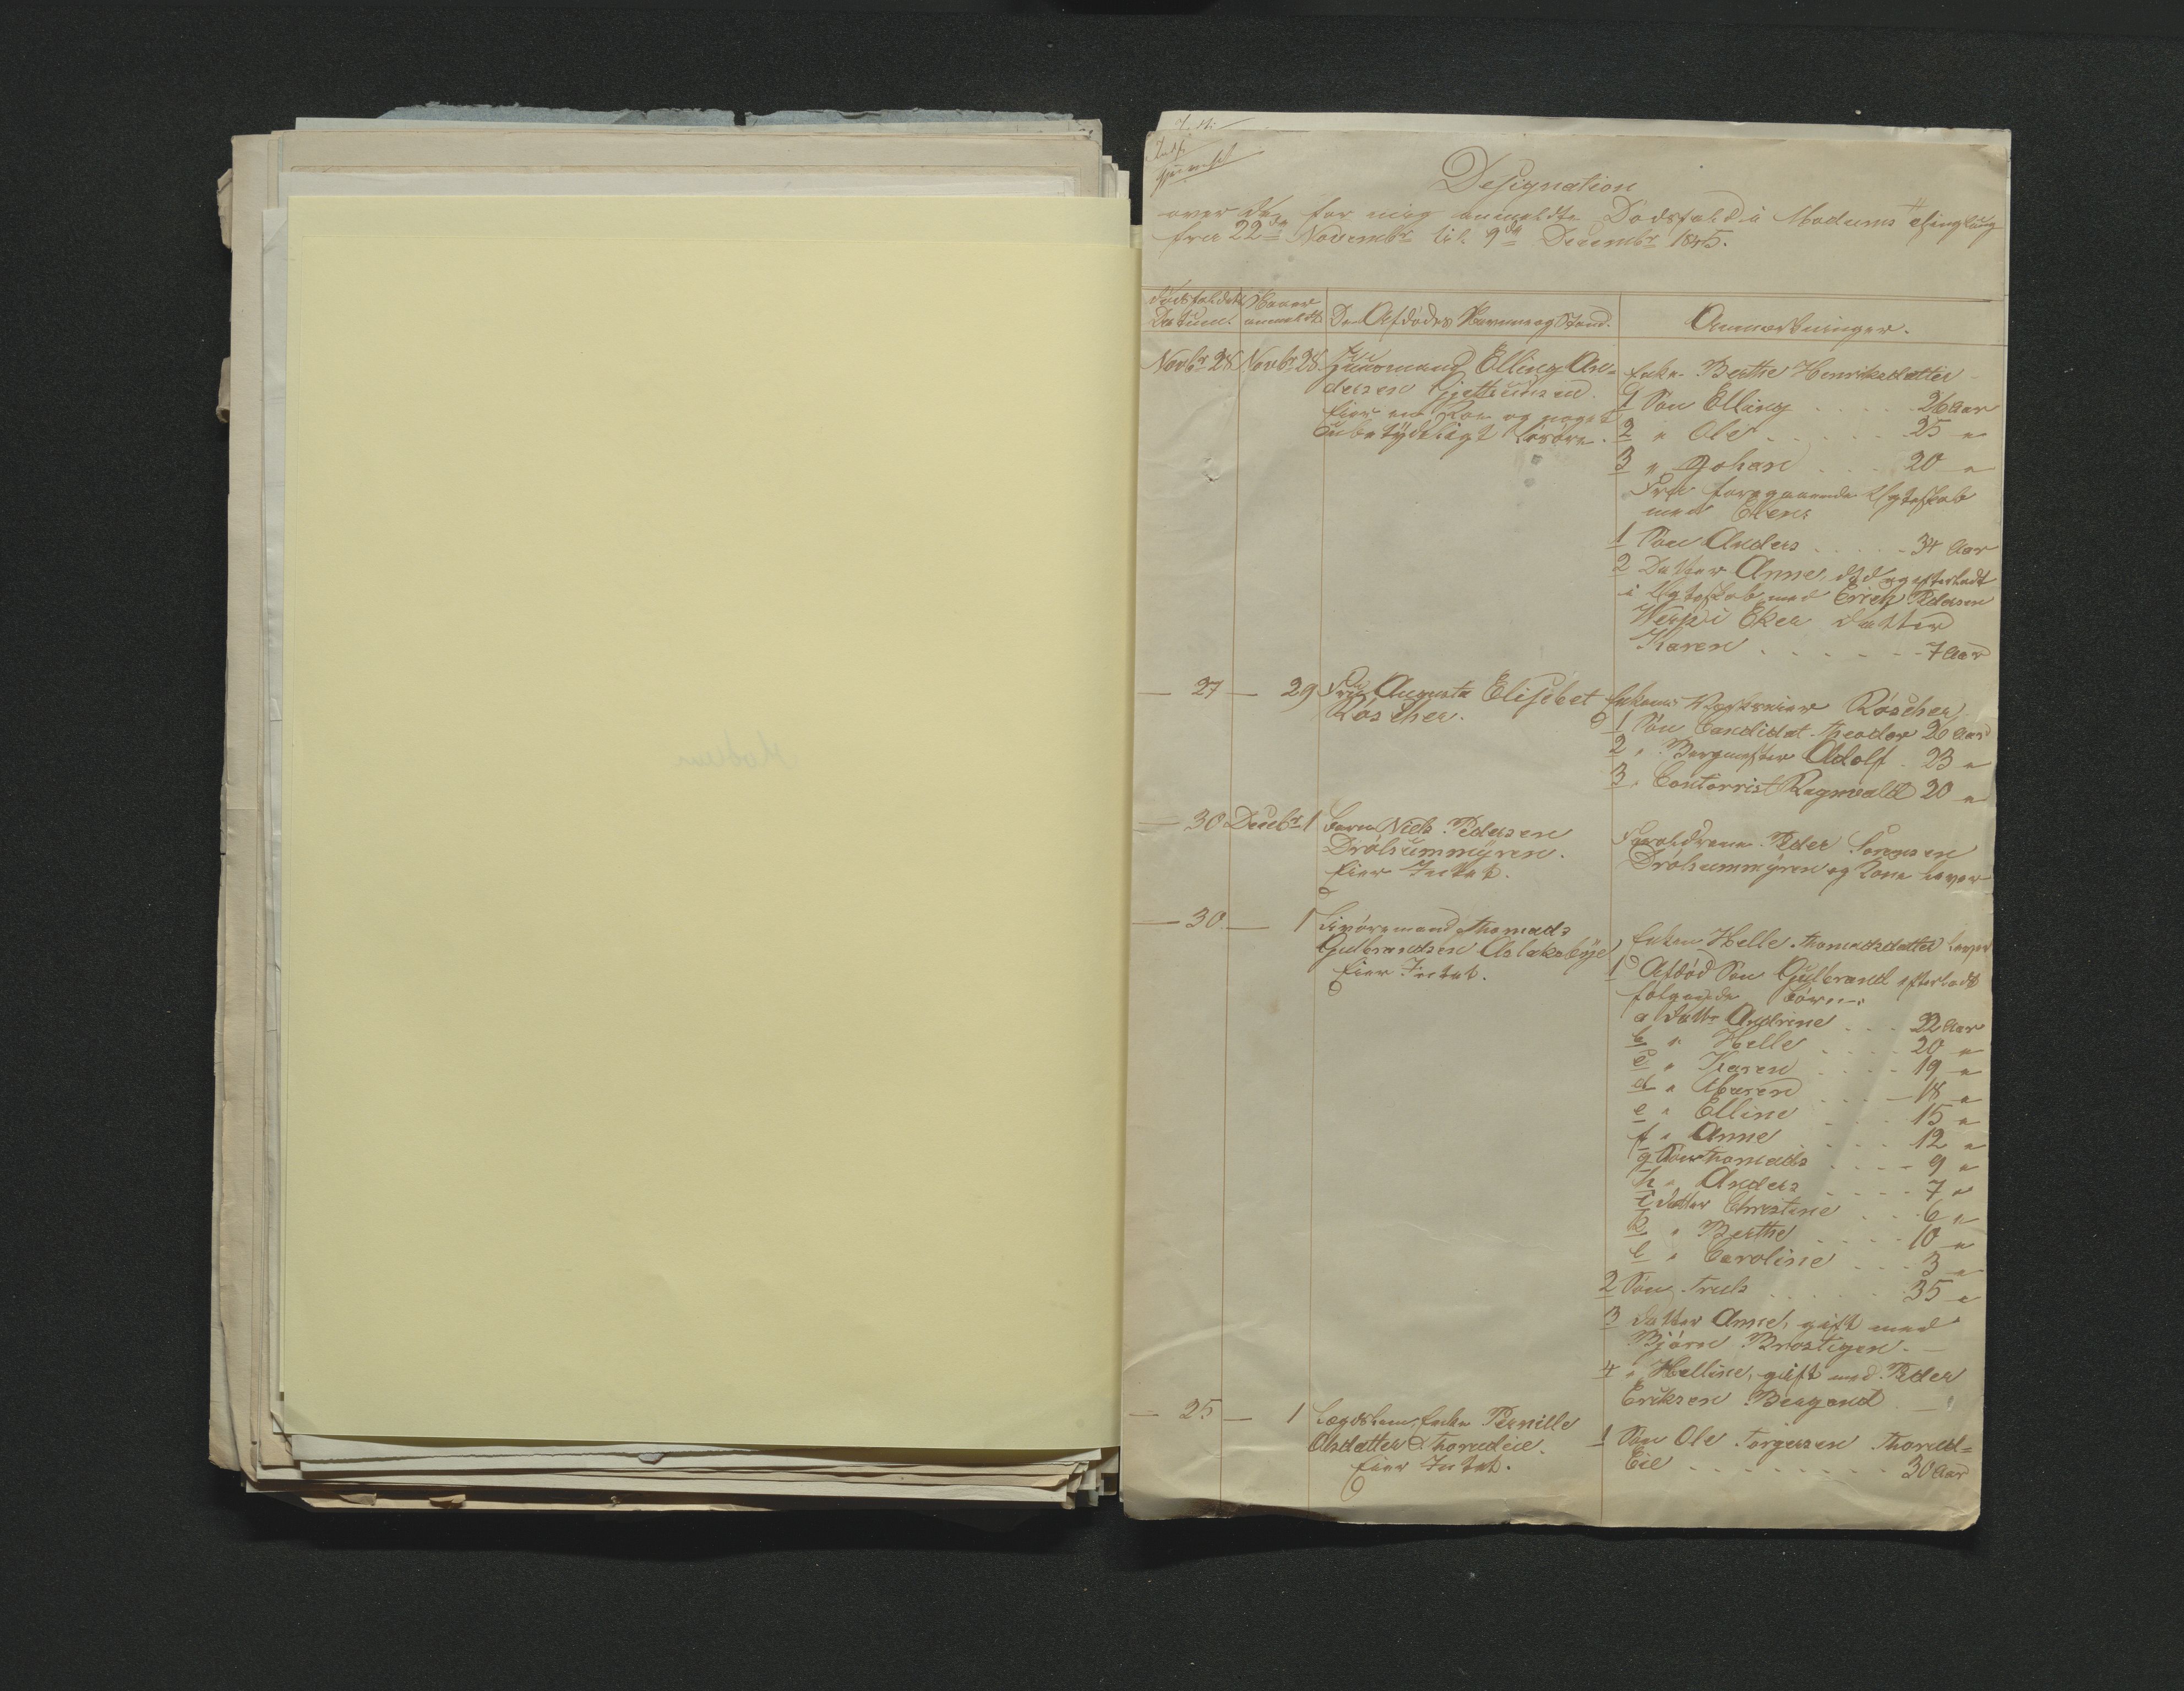 Modum
Designation
over de for mig anmeldte Dødsfald i Modums Thinglaug
fra 22de Novembr til 9de Decembr 1845.
Dødsfaldets Datum.
Naar anmeldt
Den Afdødes Navn og Stand.
Anmærkninger.
Novbr 28 Novbr 28 Huusmand Elling An-
dersen
Eier en Koe og noget
ubetydeligt Løsøre.
Enke Berthe Henriksdatter
1 Søn Elling . . . . 26 Aar
2 " Ole . . . . . 25 "
3 " Johan . . . 20 "
Fra foregaaende Ægteskab
med Elen:
1 Søn Anders . . . . 34 Aar
2 Datter Anne, død og efterladt
i Ægteskab med Erich Pedersen
i Eker datter
Karen . . . . . . 7 Aar
— 27 — 29 Fru Augusta Elisebet
Røscher.
Enkem: Røscher,
1 Søn Candidat Theodor 26 Aar
2 " Adolf . 23 "
3 " Contorrist Ragnvald 20 "
— 30 Decbr 1 Barn Niels Pedersen
Drolsummÿren.
Eier Intet.
Forældrene Peder Sørensen
Drolsummÿren og Kone lever
— 30 — 1 Thomads
Gulbrandsen Aslaksbye
Eier Intet.
Enken Helle Thomadsdatter lever
1 Afdød Søn Gulbrand efterladt
følgende Børn:
a Datter Andrine . . . 22 Aar
b " Helle . . . . 20 "
c " Karen . . . . 19 "
d " Maren . . . — 18 "
e " Elline . . . 15 "
f " Anne . . . . 12 "
g Søn Thomads . . . . 9 "
h " Anders . . . . 7 "
i Datter Christine . . 6 "
k " Berthe . . . . 10 "
l " Caroline . . . 3 "
2 Søn Truls . . . . . 35 "
3 Datter Anne, gift med
Bjørn
4 " Helline, gift med Peder
Eriksen
— 25 — 1 Lægdslem, Enke Pernille
Olsdatter Thorudeie.
Eier Intet.
1 Søn Ole Torgersen Thorud-
Eie . . . . . . . . 30 Aar